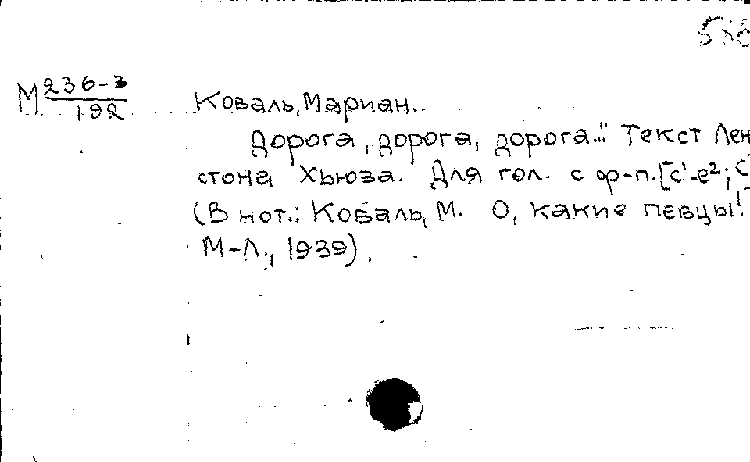 М 236-3
192
Коваль, Мариан.
"Дорога, дорога, дорога..." Текст Лен
стона Хьюза. Для гол. с ф-п. [c¹-e²; c
(В нот.: Коваль, М. О, какие певцы!
М-Л., 1939).